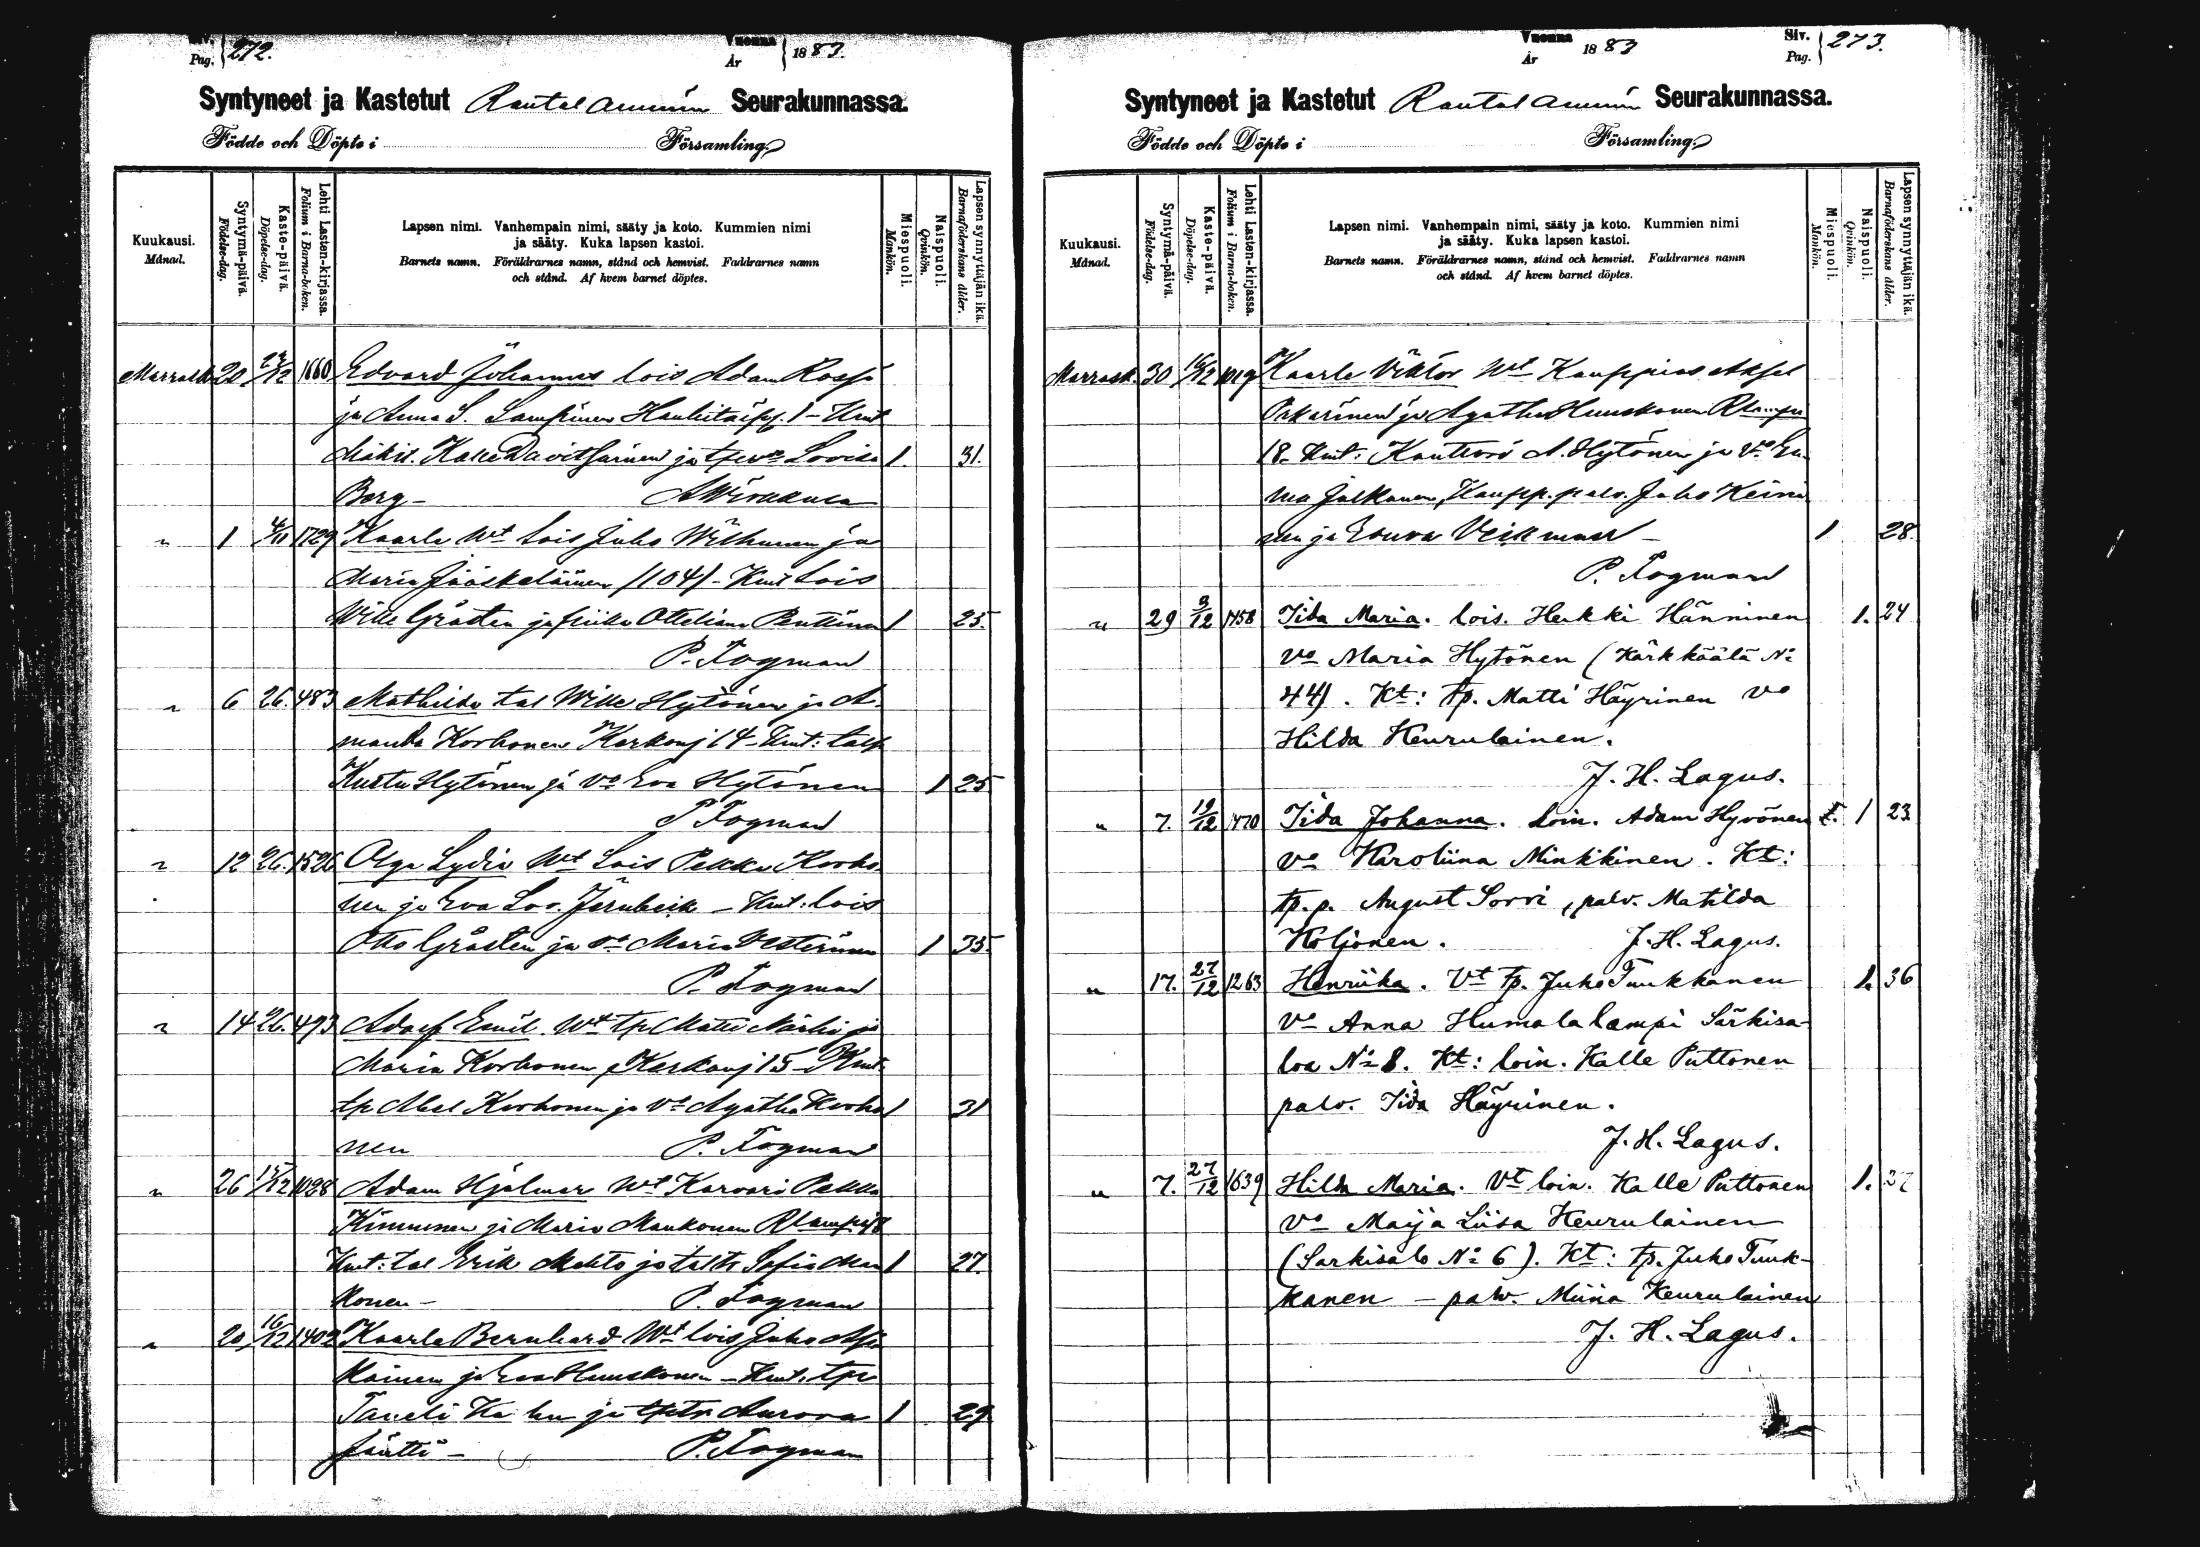 Siv. Pag. 272.
Vuonna År 1883.
Syntyneet ja Kastetut Rautalammin Seurakunnassa.
Födde och Döpte i Församling.
Kuukausi. Månad.
Syntymä-päivä. Födelse-dag.
Kaste-päivä. Döpelse-dag.
Lehti Lasten-kirjassa. Folium i Barna-boken.
Lapsen nimi. Vanhempain nimi, sääty ja koto. Kummien nimi
ja sääty. Kuka lapsen kastoi.
Barnets namn. Föräldrarnes namn, stånd och hemvist. Faddrarnes namn
och stånd. Af hvem barnet döptes.
Miespuoli. Mankön.
Naispuoli. Qvinkön.
Lapsen synnyttäjän ikä. Barnaföderskans ålder.
Marrask 20 1660 Edvard Johannes lois Adam
ja Anna S. Lampinen 1 - Kmt
Kalle Davitsainen ja Lovisa 1. 31.
Berg -
" 1 4/11 1729 Kaarle Wt Lois Juho Wilhunen ja
Maria Jääskeläinen /104/ - Kmt Lois
Wille Gråsten ja piika Otteliana Puttinen 1 25.
P. Fogman
" 6 26. 483 Mathilda tal Wille Hytönen ja A
manda Korhonen Kerkonj 14 - Kmt: talp
Kustu Hytönen ja Vo Eva Hytönen 1 25
P Fogman
" 12 26. 1526 Olga Lydia Wt Lois Pekka Korho
nen ja Eva Lov. - Kmt: lois
Otto Gråsten ja vo Maria Vesterinen 1 35.
P. Fogman
" 14 26. 493 Adolf Emil Wt tp Matti ja
Maria Korhonen Kerkonj 15 - Kmt:
tp Abel Korhonen ja Vo Agatha Korho 1 31
nen P. Fogman
" 26 15/12 1028 Adam Hjalmar Wt Karvari Pekka
Kinnunen ja Maria Maukonen Rlampi 18
Kmt: tal Erik Mehto ja taltr Sofia Mau 1 27.
konen - P. Fogman
" 20 16/12 1402 Kaarle Bernhard Wt lois Juho
ja Eva Huuskonen - Kmt: tp
Taneli ja Aurora 1 29
Jäntti - P. Fogman
Vuonna År 1883
Siv. Pag. 273.
Syntyneet ja Kastetut Rautalammin Seurakunnassa.
Födde och Döpte i Församling.
Kuukausi. Månad.
Syntymä-päivä. Födelse-dag.
Kaste-päivä. Döpelse-dag.
Lehti Lasten-kirjassa. Folium i Barna-boken.
Lapsen nimi. Vanhempain nimi, sääty ja koto. Kummien nimi
ja sääty. Kuka lapsen kastoi.
Barnets namn. Föräldrarnes namn, stånd och hemvist. Faddrarnes namn
och stånd. Af hvem barnet döptes.
Miespuoli. Mankön.
Naispuoli. Qvinkön.
Lapsen synnyttäjän ikä. Barnaföderskans ålder.
Marrask. 30 16/12 1019 Kaarle Viktor Wt Kauppias Aksel
Pakarinen ja Agatha Huuskonen Rlampi
18. Kmt: Kanttori A. Hytönen ja Vo Em
ma Jalkanen, Kaupp. palv. Juho Keini
nen ja Veikman - 1 28.
P. Fogman
" 29 3/12 1458 Iida Maria. lois. Heikki Hänninen 1. 24
vo Maria Hytönen (Kärkkäälä No
44). Kt: tp. Matti Häyrinen vo
Hilda Keurulainen.
J. H. Lagus.
" 7. 19/12 1470 Iida Johanna. Loin. Adam Hyvönen t. 1 23
vo Karoliina Minkkinen. Kt:
tp. p. August Sorri, palv. Matilda
Koljonen. J. H. Lagus.
" 17. 27/12 1263 Henriika. Vt tp. Juho Tuukkanen 1. 36
vo Anna Humalalampi Särkisa-
loa No 8. Kt: loin. Kalle Puttonen
palv. Iida Häyrinen.
J. H. Lagus.
" 7. 27/12 1639 Hilda Maria. Vt loin. Kalle Puttonen 1.
vo Maija Liisa Keurulainen
(Sarkisalo No 6). Kt: tp. Juho Tuuk-
kanen - palv. Miina Keurulainen
J. H. Lagus.